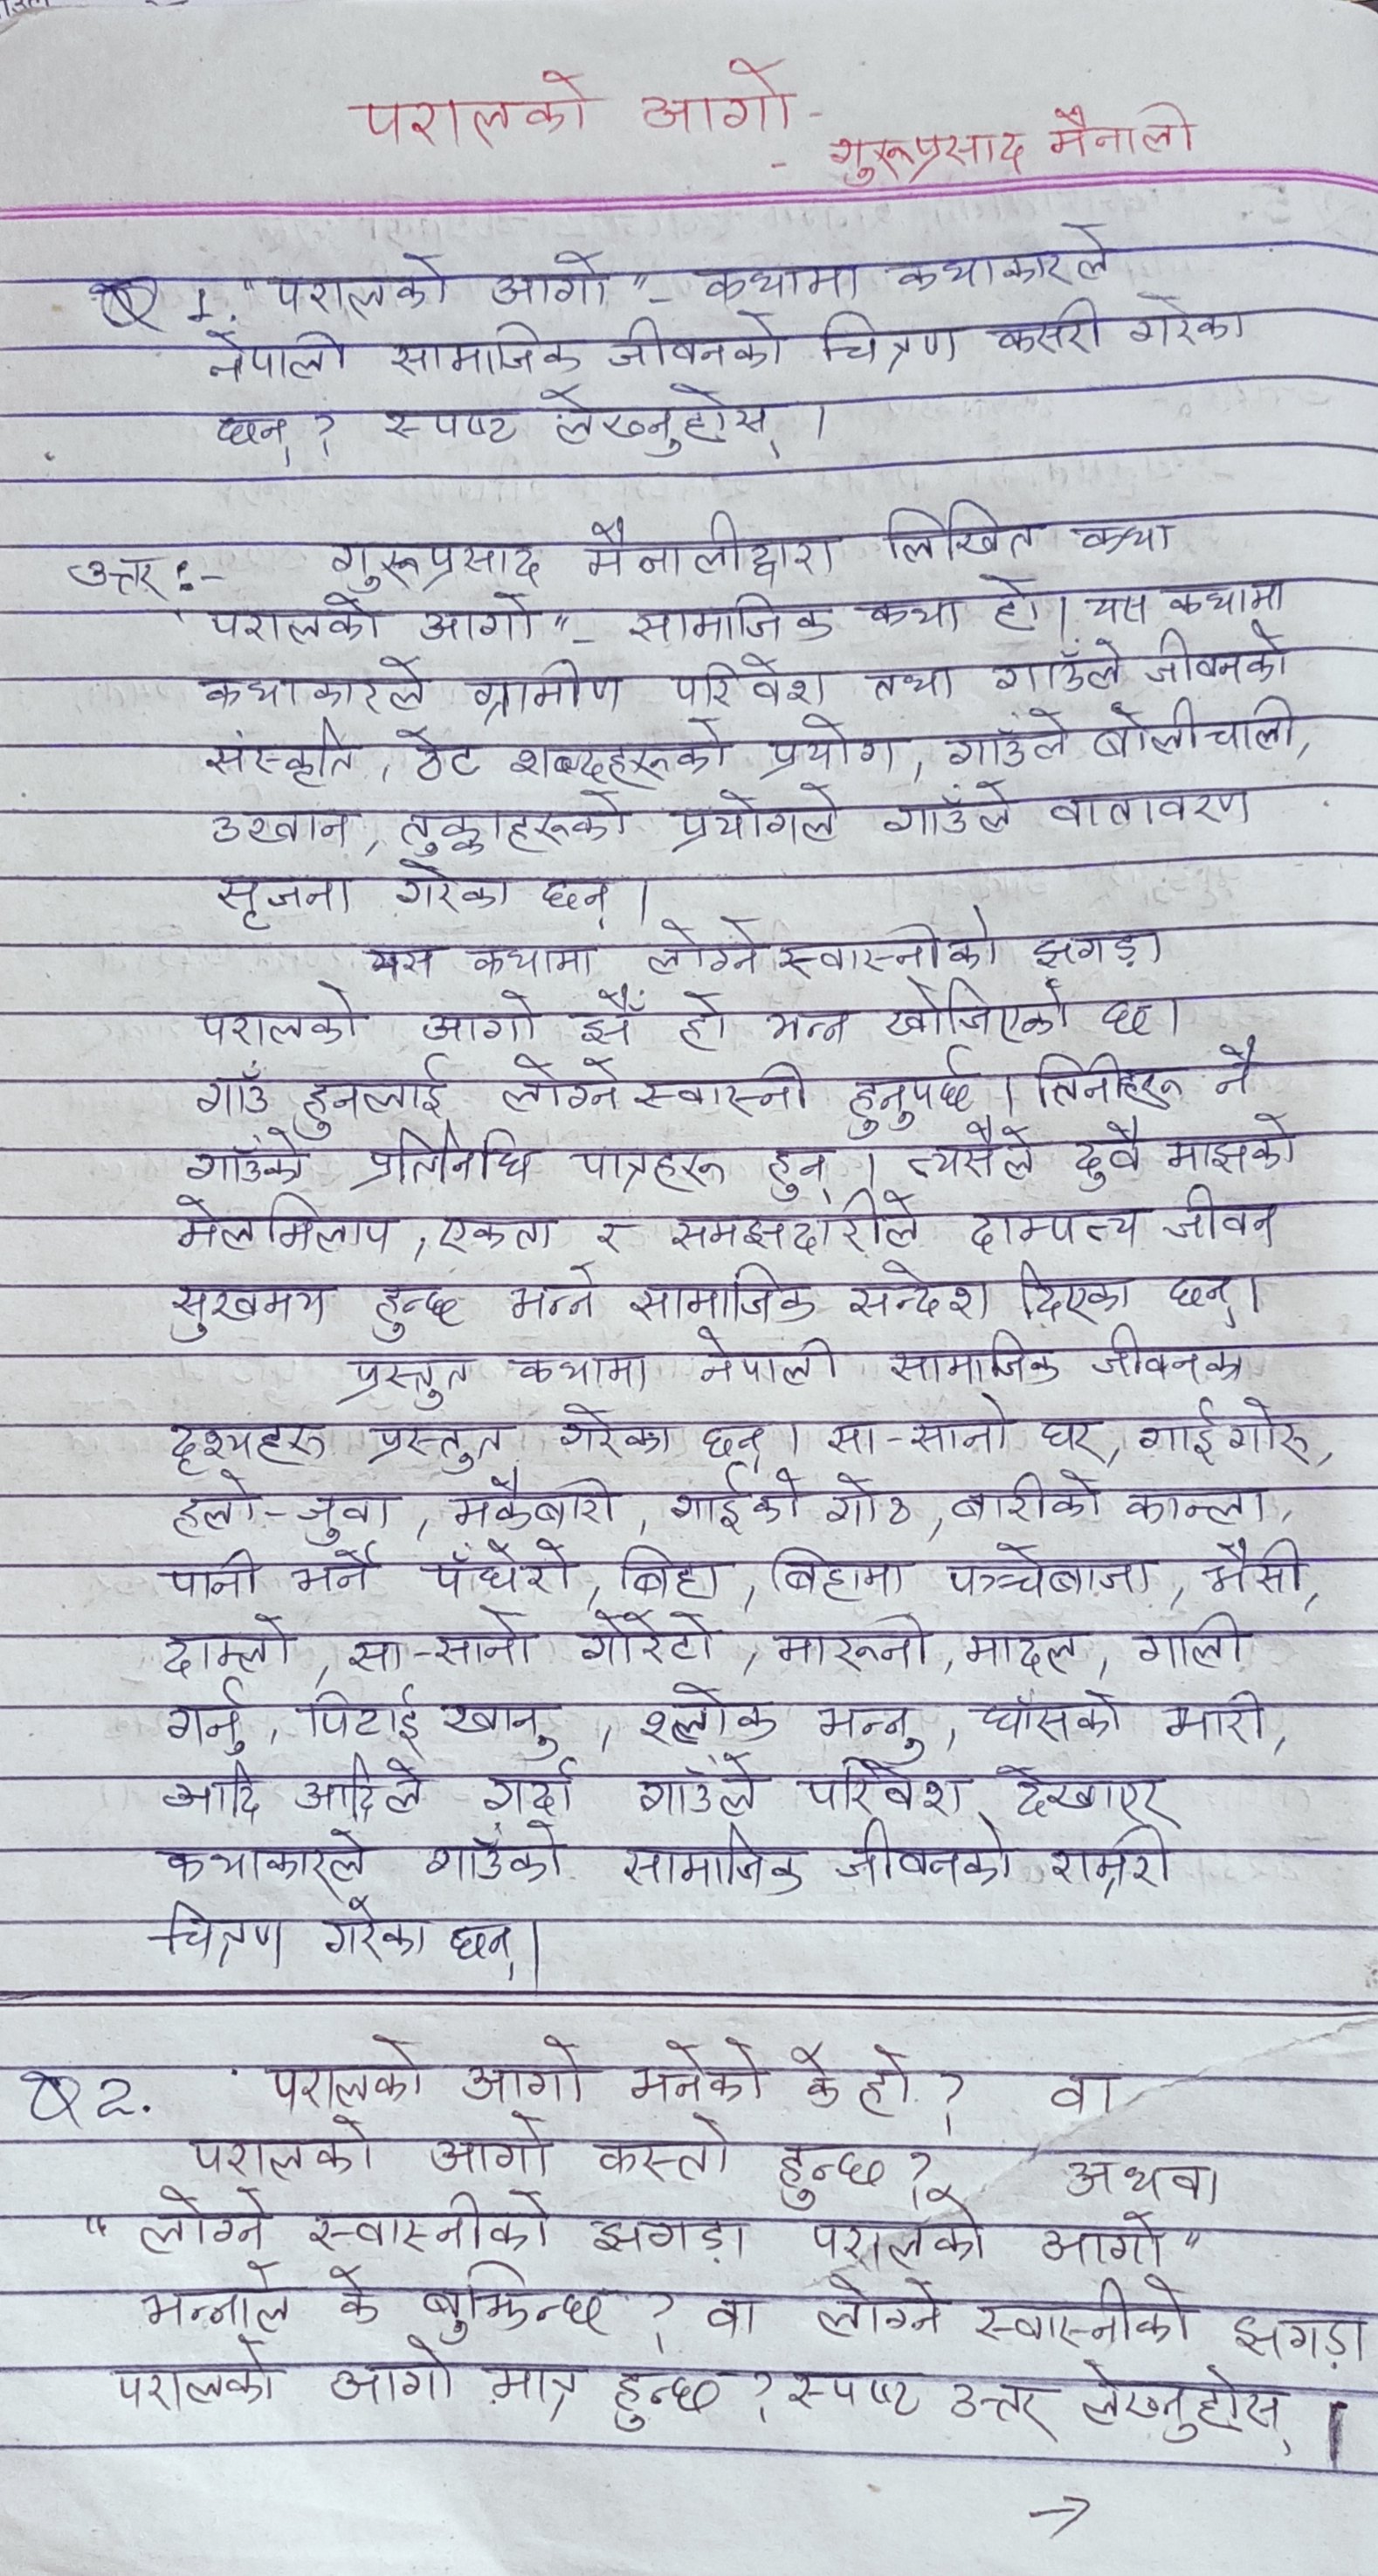 परालको आगो -
- गुरूप्रसाद मैनाली
Q 1. "परालको आगो"- कथामा कथाकारले
नेपाली सामाजिक जीवनको चित्रण कसरी गरेका
छन्? स्पष्ट लेख्नुहोस् ।
उत्तर :- गुरूप्रसाद मैनालीद्वारा लिखित कथा
"परालको आगो"- सामाजिक कथा हो। यस कथामा
कथाकारले ग्रामीण परिवेश तथा गाउँले जीवनको
संस्कृति, ठेट शब्दहरूको प्रयोग, गाउँले बोलीचाली,
उखान, तुक्काहरूको प्रयोगले गाउँले वातावरण
सृजना गरेका छन् ।
यस कथामा लोग्ने स्वास्नीको झगडा
परालको आगो झैँ हो भन्न खोजिएको छ।
गाउँ हुनलाई लोग्ने स्वास्नी हुनुपर्छ । तिनीहरू नै
गाउँको प्रतिनिधि पात्रहरू हुन् । त्यसैले दुवै माझको
मेलमिलाप, एकता र समझदारीले दाम्पत्य जीवन
सुखमय हुन्छ भन्ने सामाजिक सन्देश दिएका छन्।
प्रस्तुत कथामा नेपाली सामाजिक जीवनका
दृश्यहरू प्रस्तुत गरेका छन् । सा-सानो घर, गाईगोरू,
हलो-जुवा, मकैबारी, गाईको गोठ, बारीको कान्ला,
पानी भर्ने पँधेरो, बिहा, बिहामा पञ्चेबाजा, भैसी,
दाम्लो, सा-सानो गोरेटो, मारूनी, मादल, गाली
गर्नु, पिटाई खानु, श्लोक भन्नु, घाँसको भारी,
आदि आदिले गर्दा गाउँले परिवेश देखाएर
कथाकारले गाउँको सामाजिक जीवनको राम्ररी
चित्रण गरेका छन्।
Q 2. परालको आगो भनेको के हो? वा
परालको आगो कस्तो हुन्छ? अथवा
"लोग्ने स्वास्नीको झगडा परालको आगो"
भन्नाले के बुझिन्छ? वा लोग्ने स्वास्नीको झगडा
परालको आगो मात्र हुन्छ? स्पष्ट उत्तर लेख्नुहोस् ।
→